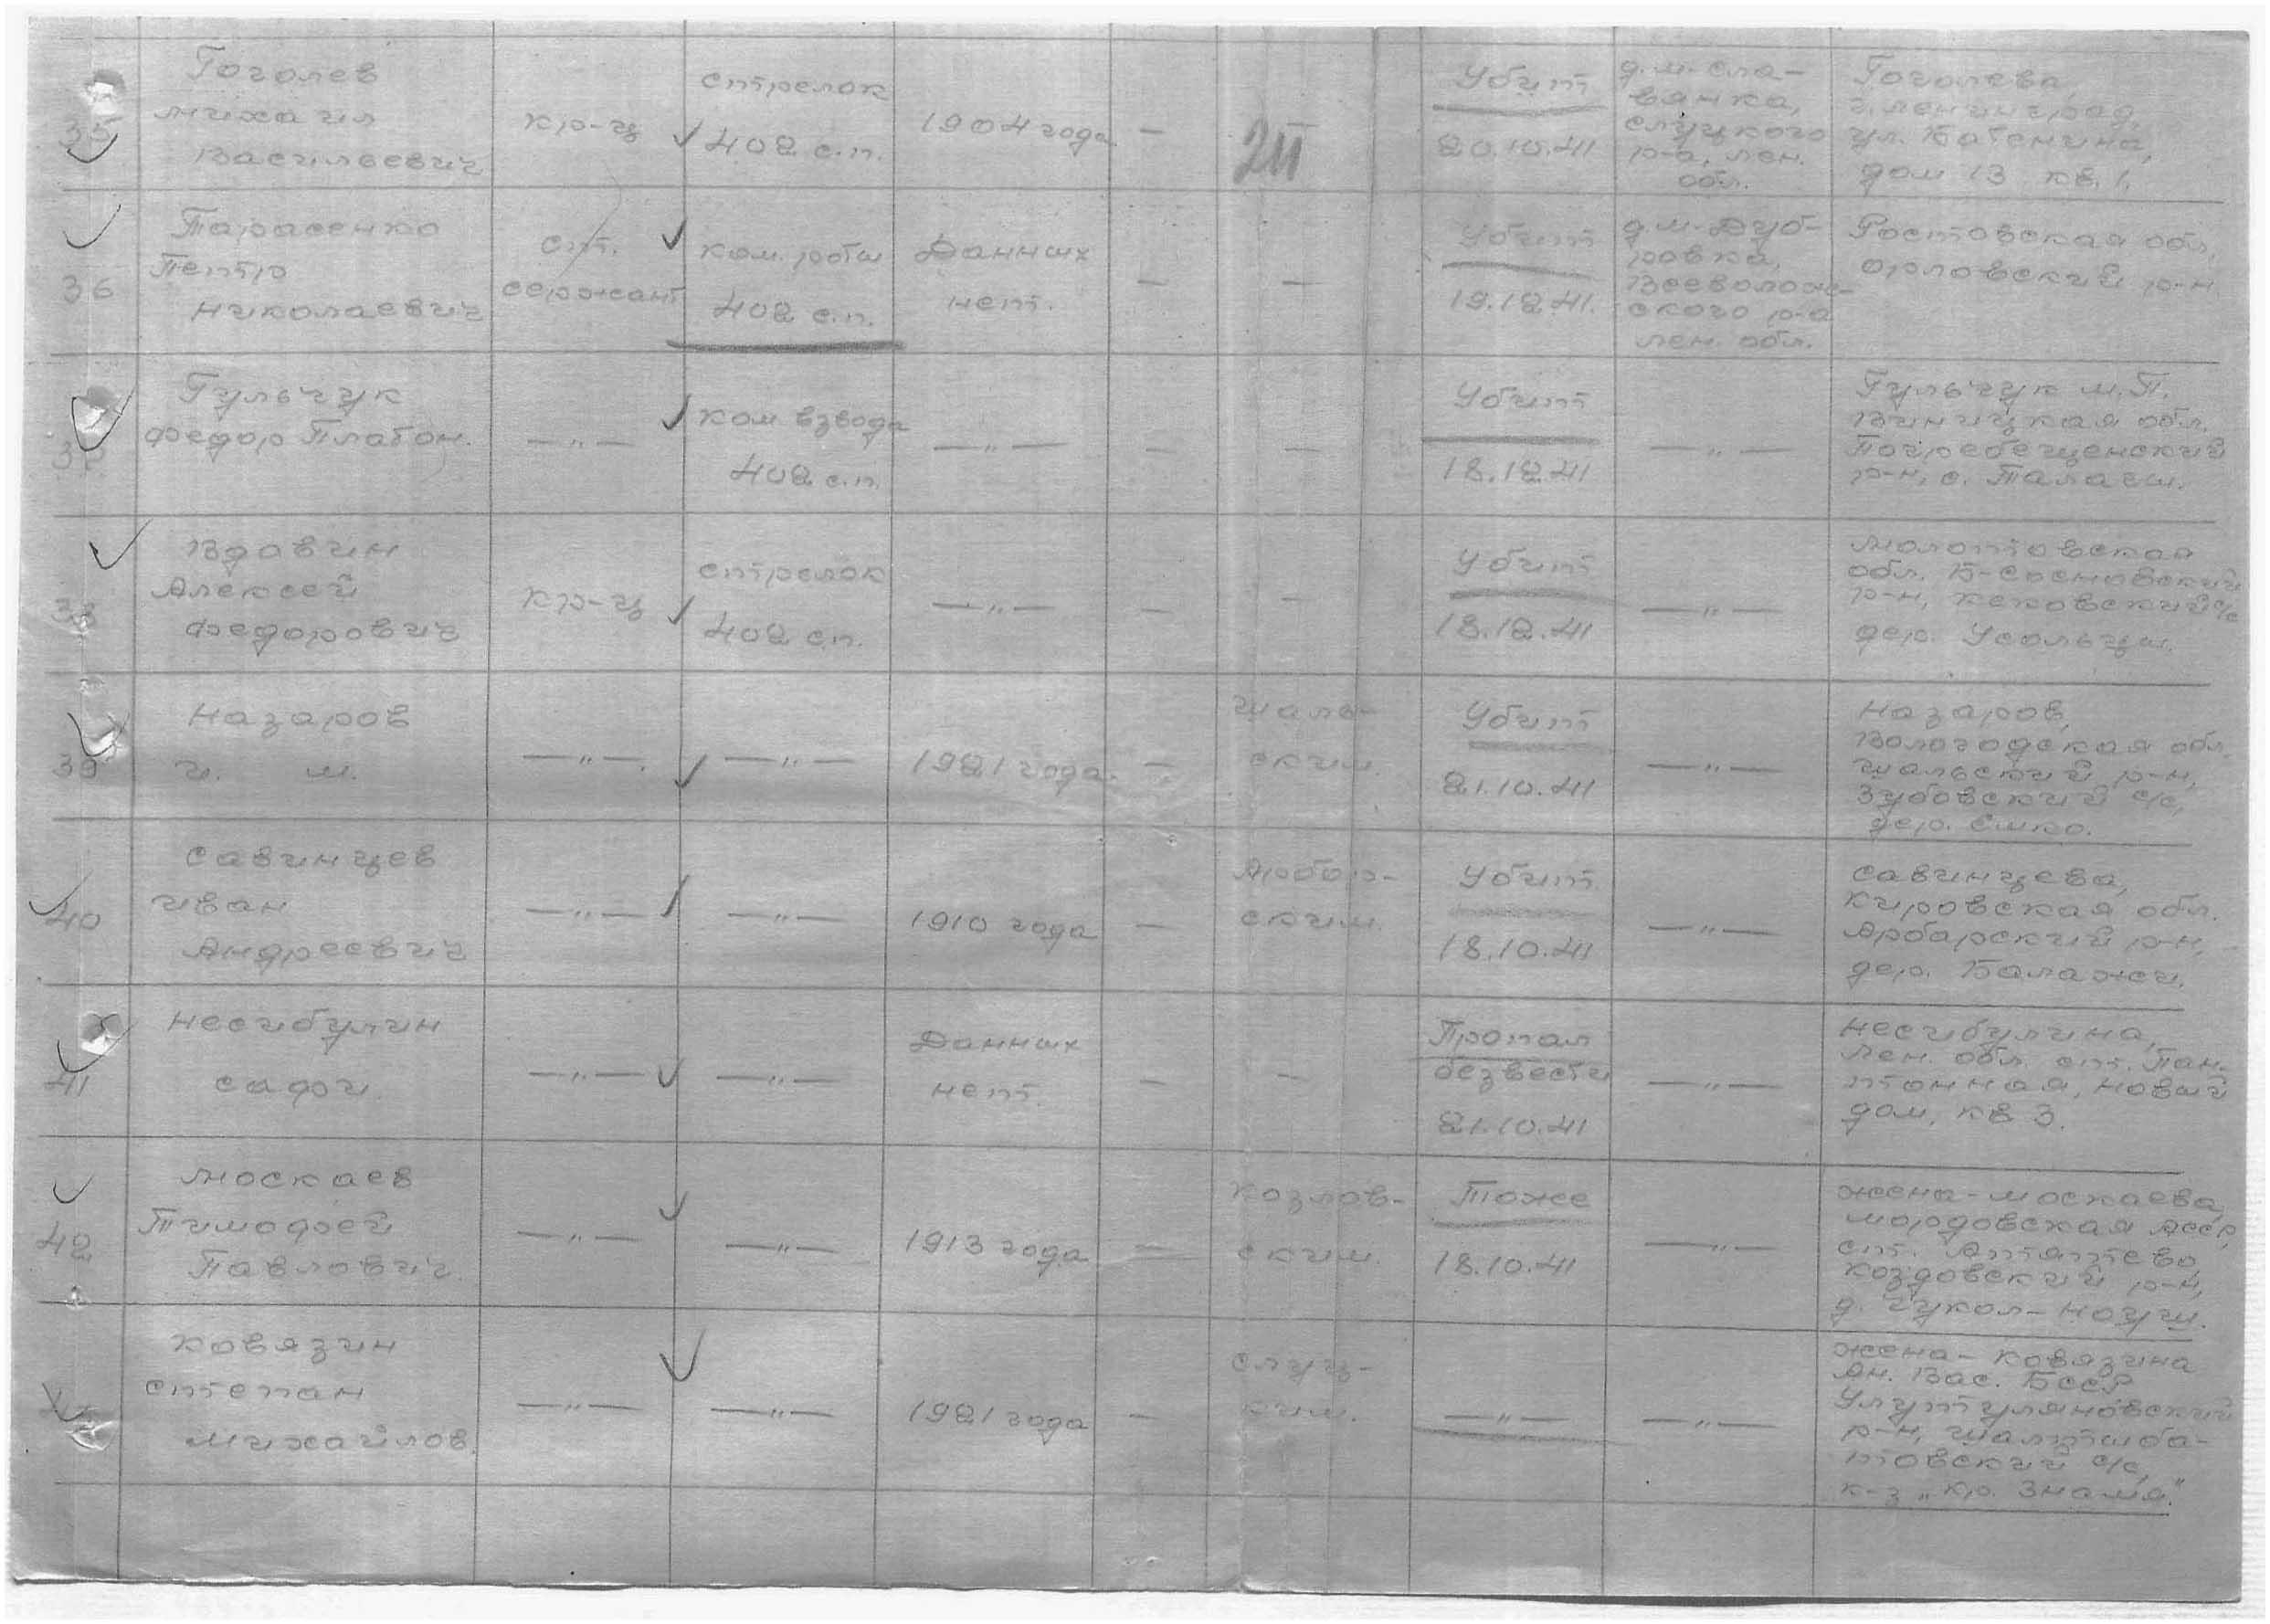 35
Гоголев
Михаил
Васильевич
кр-ц
стрелок
402 с.п.
1904 года
—
211
Убит
20.10.41
д.м-сла-
вянка,
слуцкого
р-а, лен.
обл.
Гоголева,
г. Ленинград,
ул. Батенина,
дом 13 кв. 1.
36
Тарасенко
Петр
Николаевич
ст.
сержант
ком. роты
402 с.п.
Данных
нет.
—
—
Убит
19.12.41.
д.м-Дуб-
ровка,
Всеволож-
ского р-а
лен. обл.
Ростовская обл.
Орловский р-н.
37
Гульчук
Федор Платон.
—"—
ком взвода
402 с.п.
—"—
—
—
Убит
18.12.41
—"—
Гульчук М.П.
Виницкая обл.
Погребещенский
р-н, с. Талачи.
38
Вдовин
Алексей
Федорович
кр-ц
стрелок
402 с.п.
—"—
—
—
Убит
18.12.41
—"—
Молотовская
обл. Б-Сосновский
р-н, Кековский с/с
дер. Усольцы.
39
Назаров
И. М.
—"—.
—"—
1921 года.
—
Шаль-
ским.
Убит
21.10.41
—"—
Назаров,
Вологодская обл.
Шальский р-н,
Зубовский с/с,
дер. Емко.
40
Савинцев
Иван
Андреевич
—"—
—"—
1910 года
—
ским.
Убит
18.10.41
—"—
Савинцева,
Кировская обл.
Арбарский р-н,
дер. Балажси.
41
Несибулин
Сафи.
—"—
—"—
Данных
нет.
—
—
Пропал
безвести
21.10.41
—"—
Несибулина,
Лен. обл. ст. Пон-
тонная, новый
дом, кв 3.
42
Москаев
Тимофей
Павлович.
—"—
—"—
1913 года
—
Козлов-
ским.
Тоже
18.10.41
—"—
жена - Москаева,
Мордовская АССР,
ст. Атятево,
Коздовский р-н,
д. Чукол-Нощи.
Ковязин
Степан
Михайлов.
—"—
—"—
1921 года
—
Слуц-
ким.
—"—
—"—
жена - Ковязина
Ан. Вас. БССР
Улутуляновский
р-н, Шалтыба-
товский с/с,
к-з „Кр. Знамя".